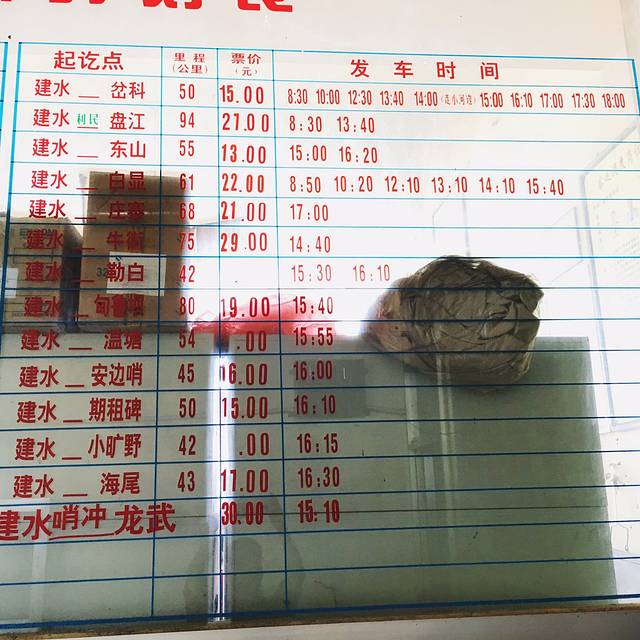 起讫点 里程(公里) 票价(元) 发车时间
建水__岔科 50 15.00 8:30 10:00 12:30 13:40 14:00(走小河边) 15:00 16:10 17:00 17:30 18:00
建水 利民 盘江 94 27.00 8:30 13:40
建水__东山 55 13.00 15:00 16:20
建水__白显 61 22.00 8:50 10:20 12:10 13:10 14:10 15:40
建水__庄寨 68 21.00 17:00
建水__牛街 75 29.00 14:40
建水__勒白 42 15:30 16:10
建水__甸鲁坝 80 19.00 15:40
建水__温塘 54 .00 15:55
建水__安边哨 45 16.00 16:00
建水__期租碑 50 15.00 16:10
建水__小旷野 42 .00 16:15
建水__海尾 43 17.00 16:30
建水哨冲龙武 30.00 15:10